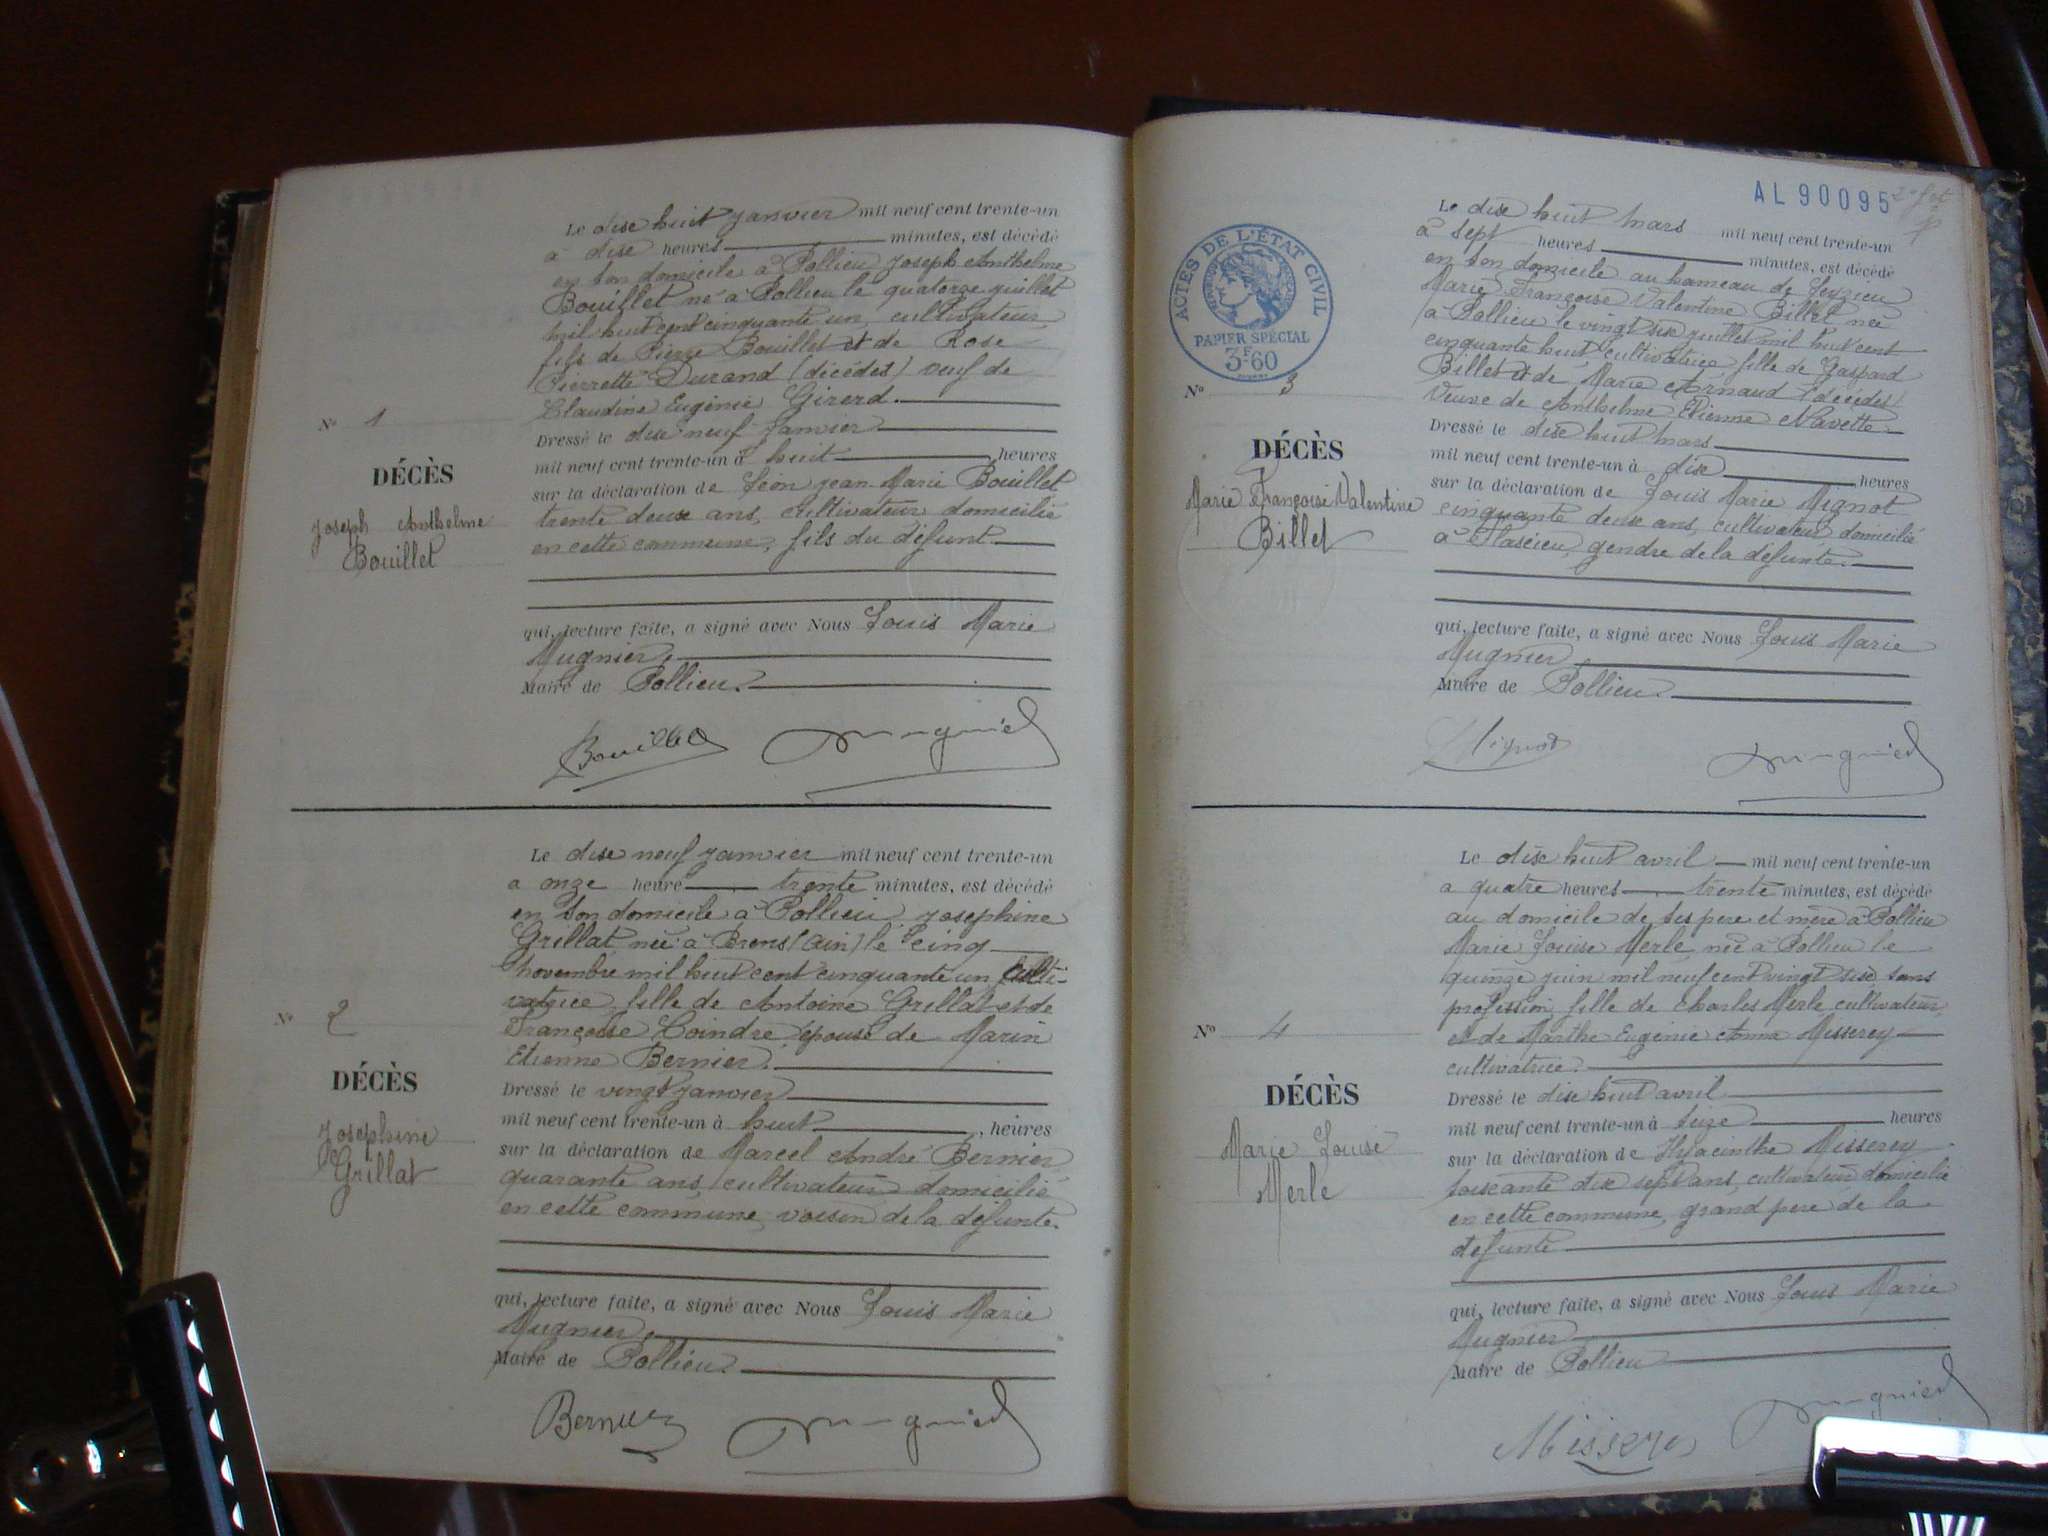 Le dixe huit janvier mil neuf cent trente-un
à dixe heures minutes, est décédé
en son domicile à Pollieu Joseph Anthelme
Bouillet né à Pollieu le quatorze juillet
mil huit cent cinquante un, cultivateur,
fils de Pierre Bouillet et de Rose
Pierrette Durand (décédés) veuf de
Claudine Eugénie Girerd.
Dressé le dixe neuf Janvier
mil neuf cent trente-un à huit heures
sur la déclaration de Léon Jean Marie Bouillet
trente deuxe ans, cultivateur domicilié
en cette commune, fils du défunt.
qui, lecture faite, a signé avec Nous Louis Marie
Mugnier,
Maire de Pollieu.
N° 1
DÉCÈS
Joseph Anthelme
Bouillet
Bouillet Mugnier
Le dixe neuf janvier mil neuf cent trente-un
a onze heure trente minutes, est décédé
en son domicile à Pollieu Josephine
Grillat, née à Brens (Ain) le cinq
novembre mil huit cent cinquante un, culti-
vatrice, fille de Antoine Grillat et de
Françoise Coindre épouse de Marin
Etienne Bernier.
Dressé le vingt janvier
mil neuf cent trente-un à huit, heures
sur la déclaration de Marcel André Bernier
quarante ans, cultivateur domicilié
en cette commune, voisin de la défunte.
qui, lecture faite, a signé avec Nous Louis Marie
Mugnier,
Maire de Pollieu.
N° 2
DÉCÈS
Josephine
Grillat
Bernier Mugnier
AL 90095
ACTES DE L'ÉTAT CIVIL
PAPIER SPÉCIAL
3F60
Le dixe huit mars mil neuf cent trente-un
à sept heures minutes, est décédé
en son domicile au hameau de Leyzieu
Marie Françoise Valentine Billet née
à Pollieu le vingt sixe juillet mil huit cent
cinquante huit, cultivatrice, fille de Gaspard
Billet et de Marie Arnaud (décédés)
Veuve de Anthelme Etienne Navette.
Dressé le dixe huit mars
mil neuf cent trente-un à dixe heures
sur la déclaration de Louis Marie Mignot
cinquante deuxe ans, cultivateur domicilié
à, gendre de la defunte.
qui, lecture faite, a signé avec Nous Louis Marie
Mugnier
Maire de Pollieu.
N° 3
DÉCÈS
Marie Françoise Valentine
Billet
Mignot Mugnier
Le dixe huit avril mil neuf cent trente-un
a quatre heures trente minutes, est décédé
au domicile de ses pere et mère à Pollieu
Marie Louise Merle, née à Pollieu le
quinze juin mil neuf cent vingt sixe, sans
profession, fille de Charles Merle cultivateur,
et de Marthe Eugénie Anna Misserey
cultivatrice.
Dressé le dixe huit avril
mil neuf cent trente-un à seize heures
sur la déclaration de Hyacinthe Misserey
soixante dixe sept ans, cultivateur domicilié
en cette commune, grand pere de la
defunte
qui, lecture faite, a signé avec Nous Louis Marie
Mugnier
Maire de Pollieu
N° 4
DÉCÈS
Marie Louise
Merle
Misserey Mugnier